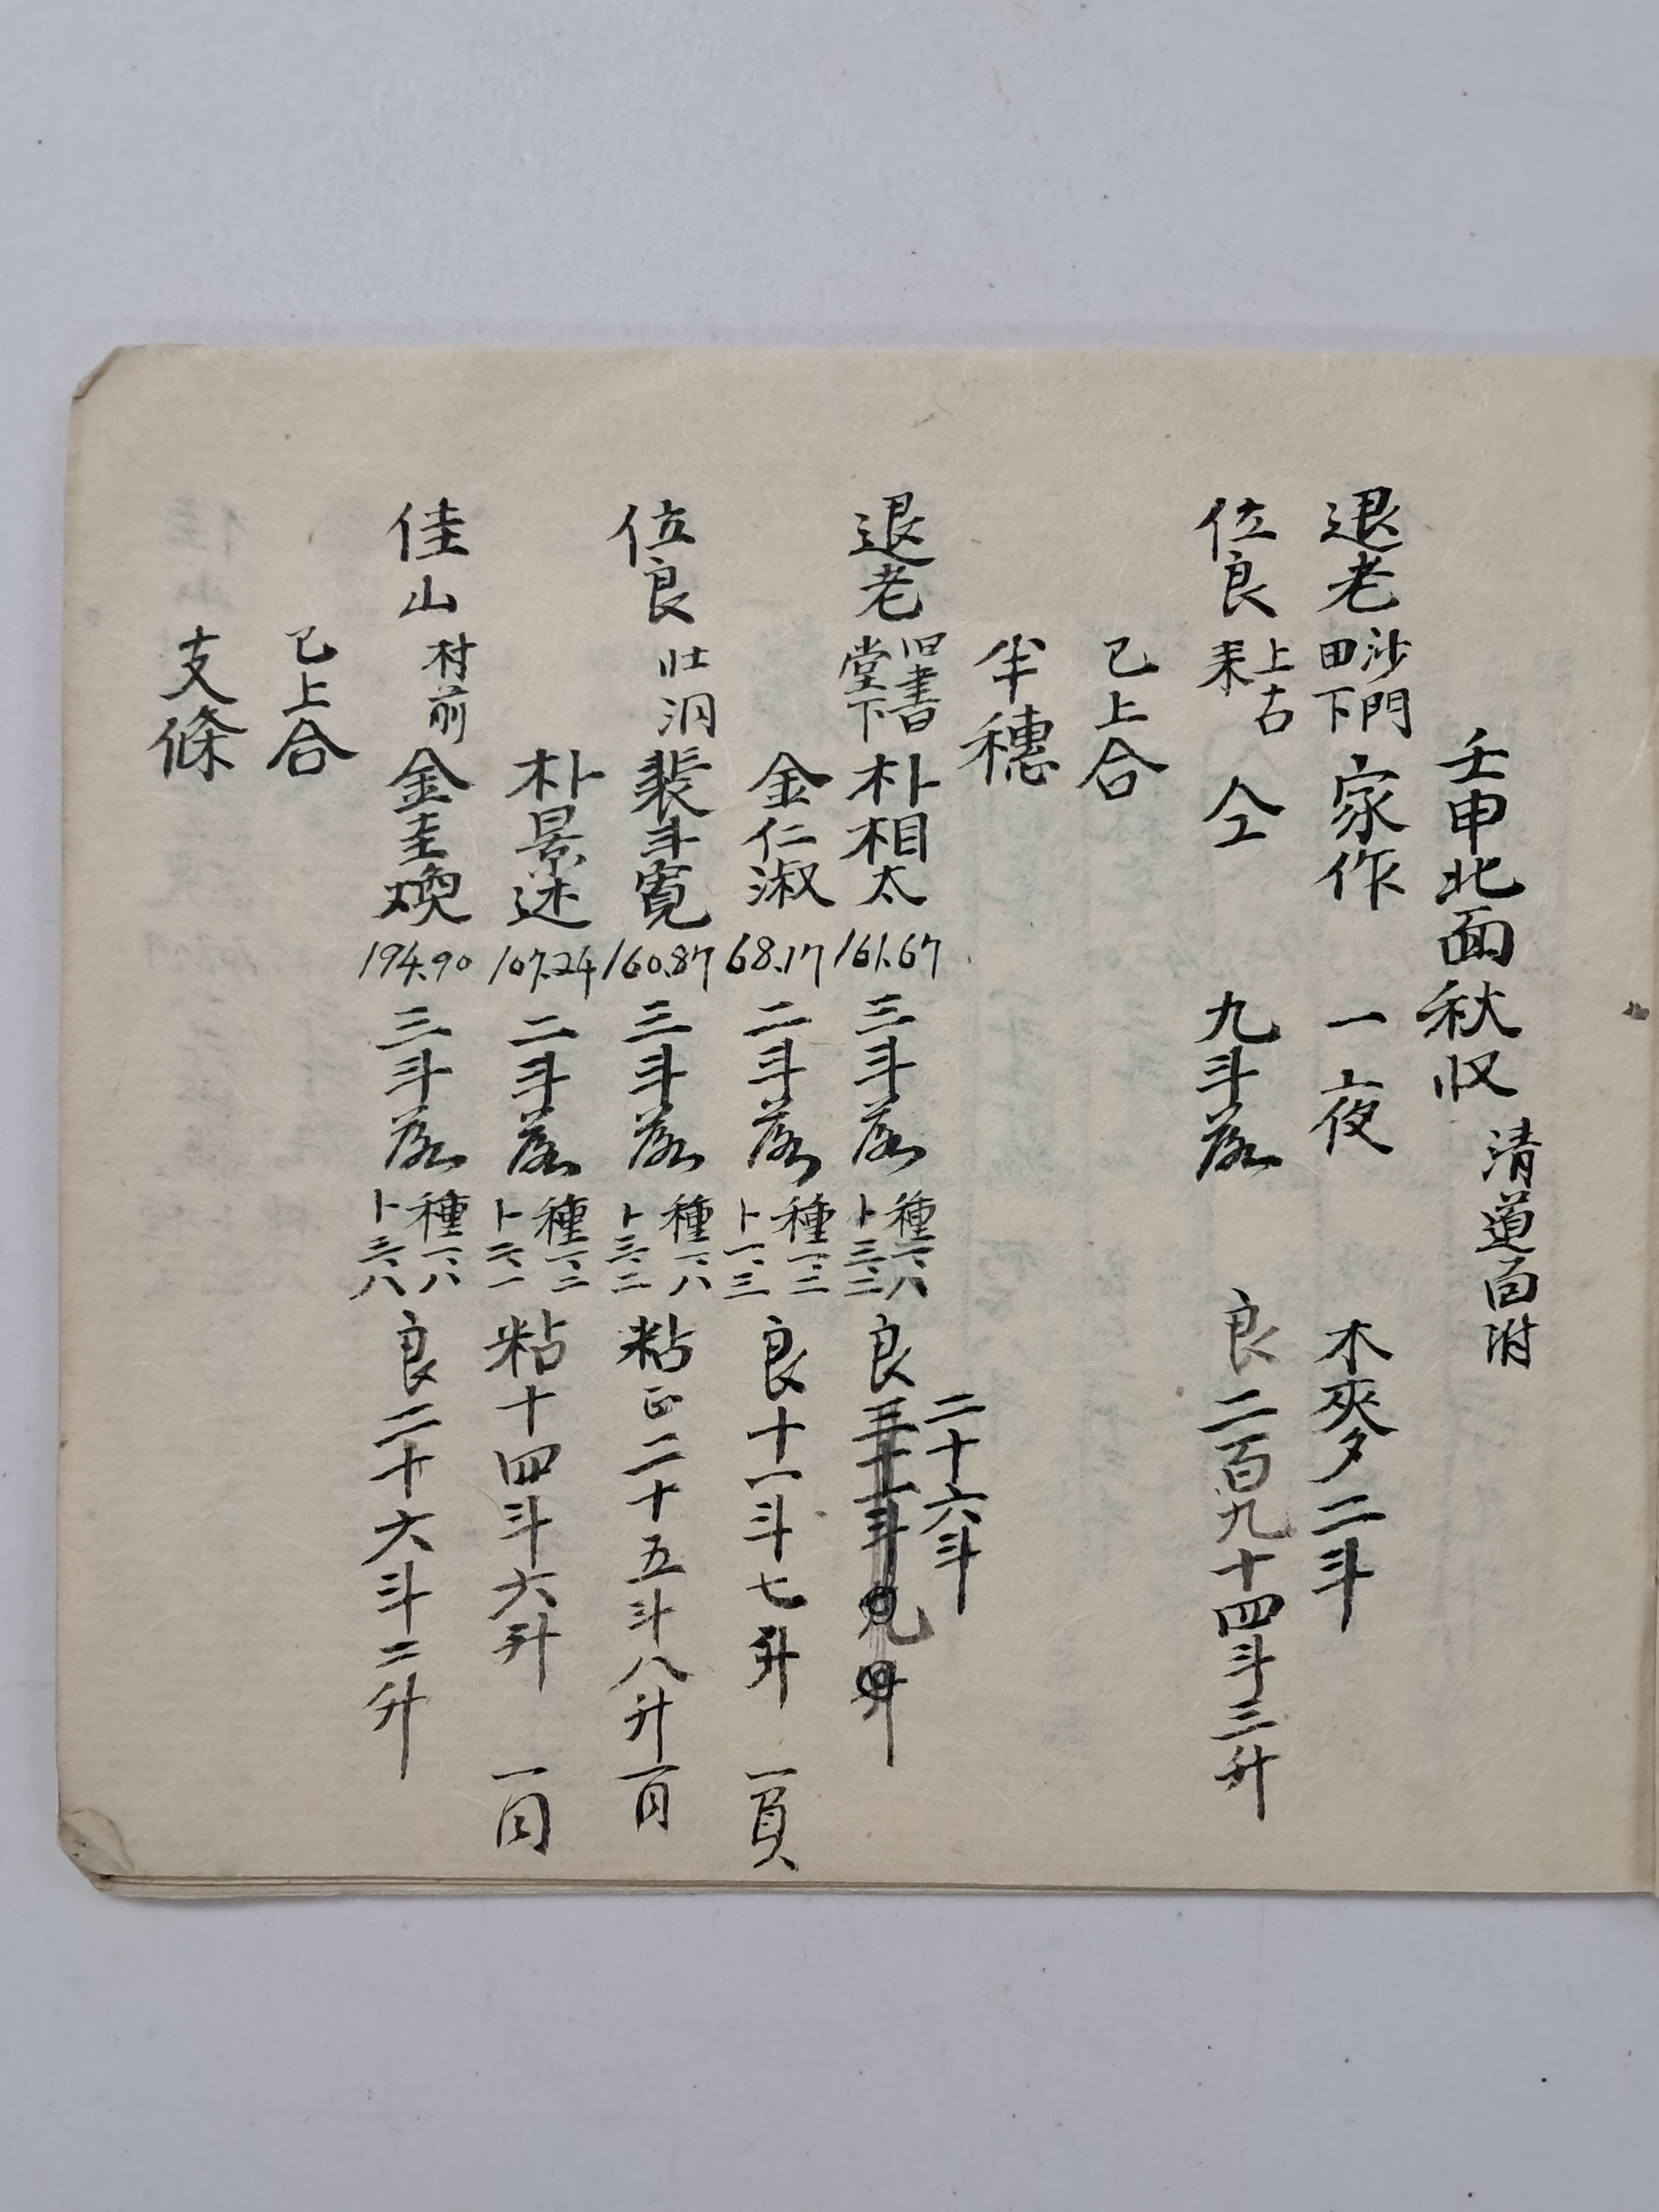 壬申北面秋収 清道面附
退老 沙門田下 家作 一夜 木麥 二斗
位良 上古耒 仝 九斗落 良二百九十四斗三升
已上合
半穗
退老 旧書堂下 朴相太 161.67 三斗落 種一、八 卜三、三 良 二十六斗
金仁淑 68.17 二斗落 種一、二 卜一、三 良十一斗七升 一負
位良 壯洞 裴斗寬 160.87 三斗落 種一、八 卜三、二 粘正二十五斗八升 一㒵
朴景述 107.24 二斗落 種一、二 卜二、一 粘十四斗六升
佳山 村前 金圭煥 194.90 三斗落 種一、八 卜三、八 良二十六斗二升
已上合
支條